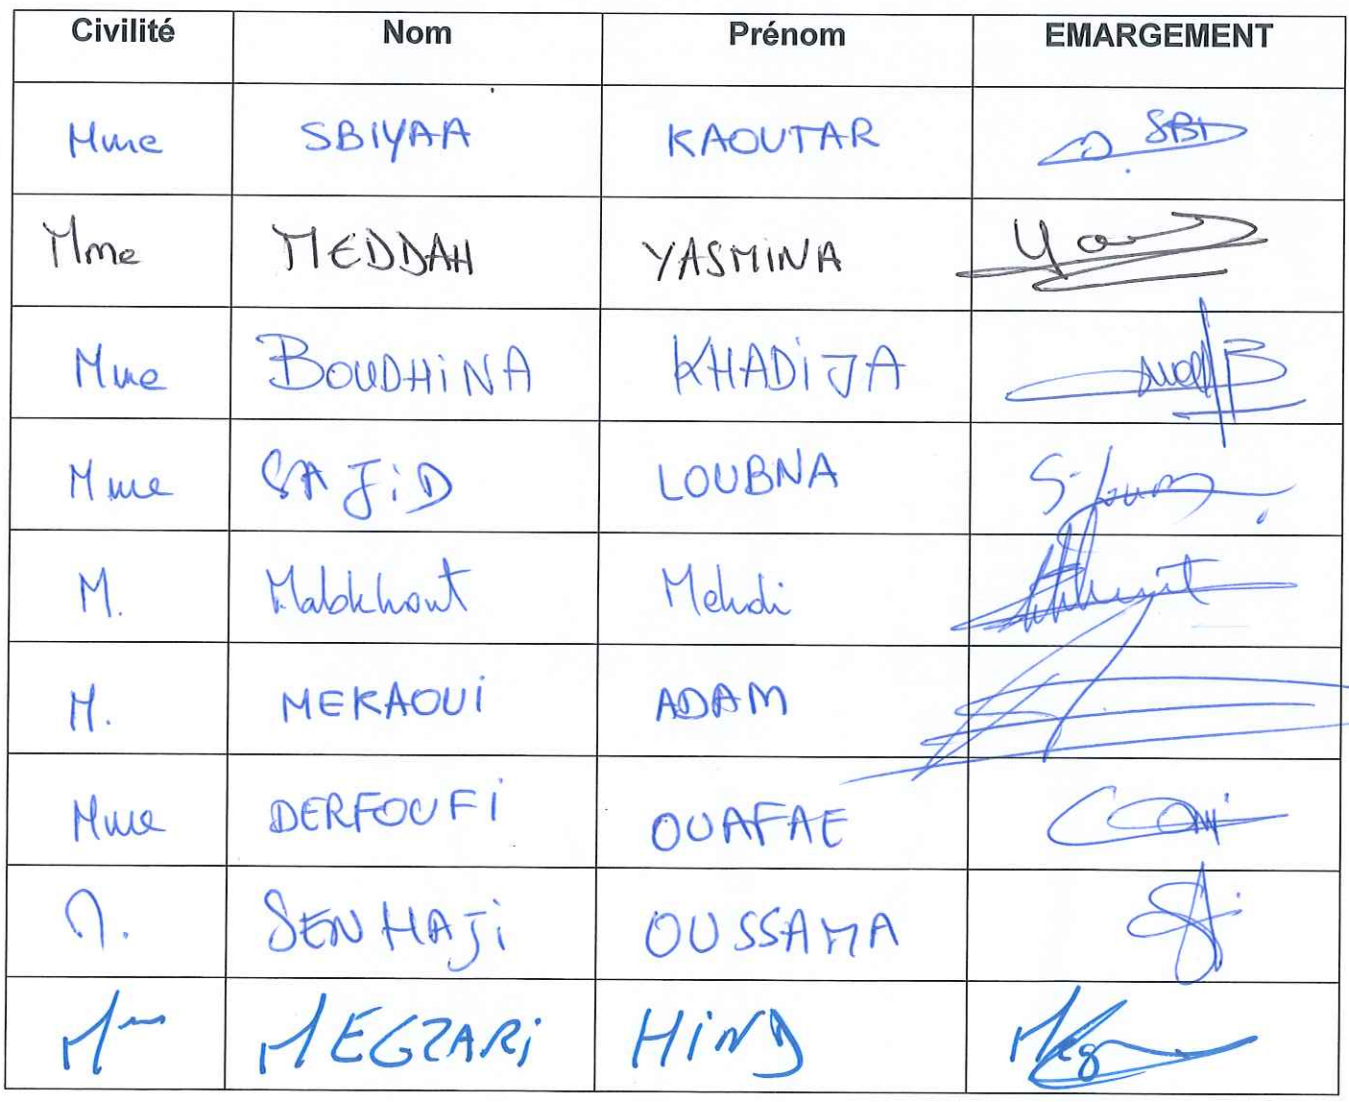 Civilité Nom Prénom EMARGEMENT
Mme SBIYAA KAOUTAR SBI
Mme MEDDAH YASMINA
Mme BOUDHiNA KHADiJA
Mme SAJiD LOUBNA
M. Mabkhout Mehdi
M. MEKAOUi ADAM
Mme DERFOUFi OUAFAE
M. SENHAJi OUSSAMA
Mme MEGZARi HiND